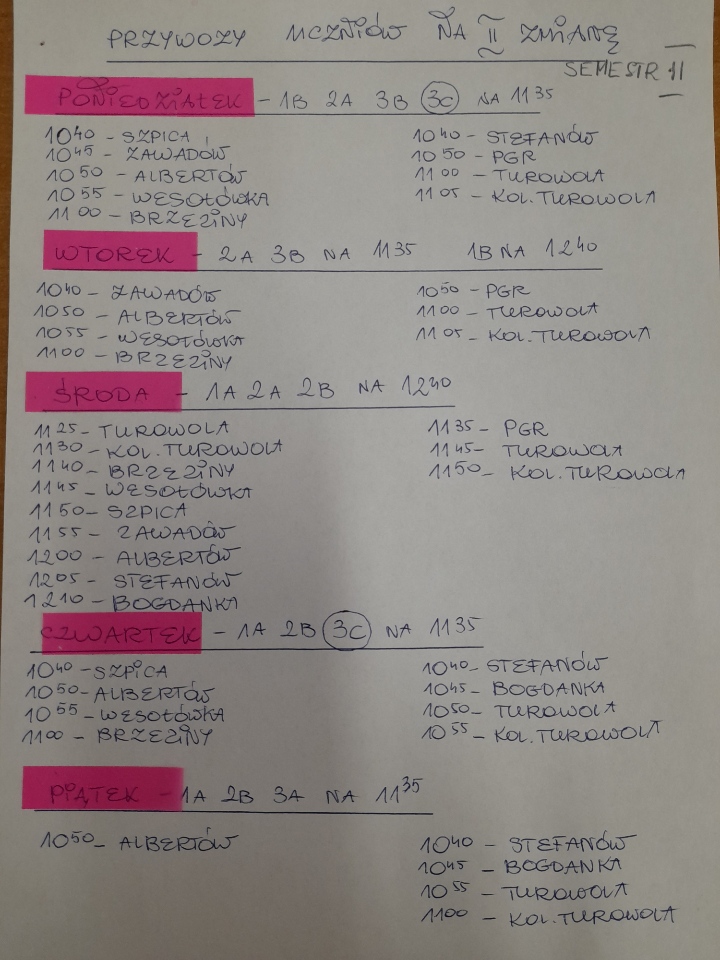 PRZYWOZY UCZNIÓW NA II ZMIANĘ
SEMESTR II
PONIEDZIAŁEK - 1B 2A 3B 3C NA 11 35
10 40 - SZPICA
10 45 - ZAWADÓW
10 50 - ALBERTÓW
10 55 - WESOŁÓWKA
11 00 - BRZEZINY
10 40 - STEFANÓW
10 50 - PGR
11 00 - TUROWOLA
11 05 - KOL. TUROWOLA
WTOREK - 2A 3B NA 11 35 1B NA 12 40
10 40 - ZAWADÓW
10 50 - ALBERTÓW
10 55 - WESOŁÓWKA
11 00 - BRZEZINY
10 50 - PGR
11 00 - TUROWOLA
11 05 - KOL. TUROWOLA
ŚRODA - 1A 2A 2B NA 12 40
11 25 - TUROWOLA
11 30 - KOL. TUROWOLA
11 40 - BRZEZINY
11 45 - WESOŁÓWKA
11 50 - SZPICA
11 55 - ZAWADÓW
12 00 - ALBERTÓW
12 05 - STEFANÓW
12 10 - BOGDANKA
11 35 - PGR
11 45 - TUROWOLA
11 50 - KOL. TUROWOLA
CZWARTEK - 1A 2B 3C NA 11 35
10 40 - SZPICA
10 50 - ALBERTÓW
10 55 - WESOŁÓWKA
11 00 - BRZEZINY
10 40 - STEFANÓW
10 45 - BOGDANKA
10 50 - TUROWOLA
10 55 - KOL. TUROWOLA
PIĄTEK - 1A 2B 3A NA 11 35
10 50 - ALBERTÓW
10 40 - STEFANÓW
10 45 - BOGDANKA
10 55 - TUROWOLA
11 00 - KOL. TUROWOLA